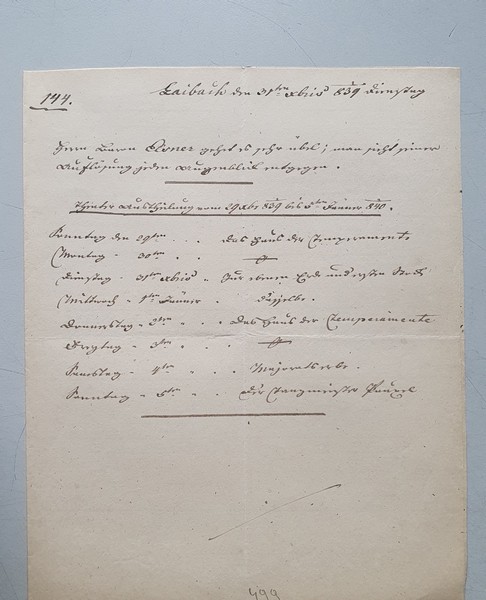 144.
Laibach den 31ten Xbris 839 Dienstag
Herrn Baron geht es sehr übel; man sieht seiner
Auflösung jeden Augenblick entgegen.
Theater Austheilung vom 29 Xbr 839 bis 5ten Jänner 840.
Sonntag den 29ten . . . Das Haus der Temperamente
Montag - 30ten - . .
Dienstag - 31ten Xbris - Zur ebenen Erde und ersten Stock
Mittwoch - 1ten Jänner - Dasselbe.
Donnerstag - 2ten - . . Das Haus der Temperamente
Freytag - 3ten - . .
Samstag - 4ten - . . Majoratserbe.
Sonntag - 5ten - . . Der Tanzmeister
499